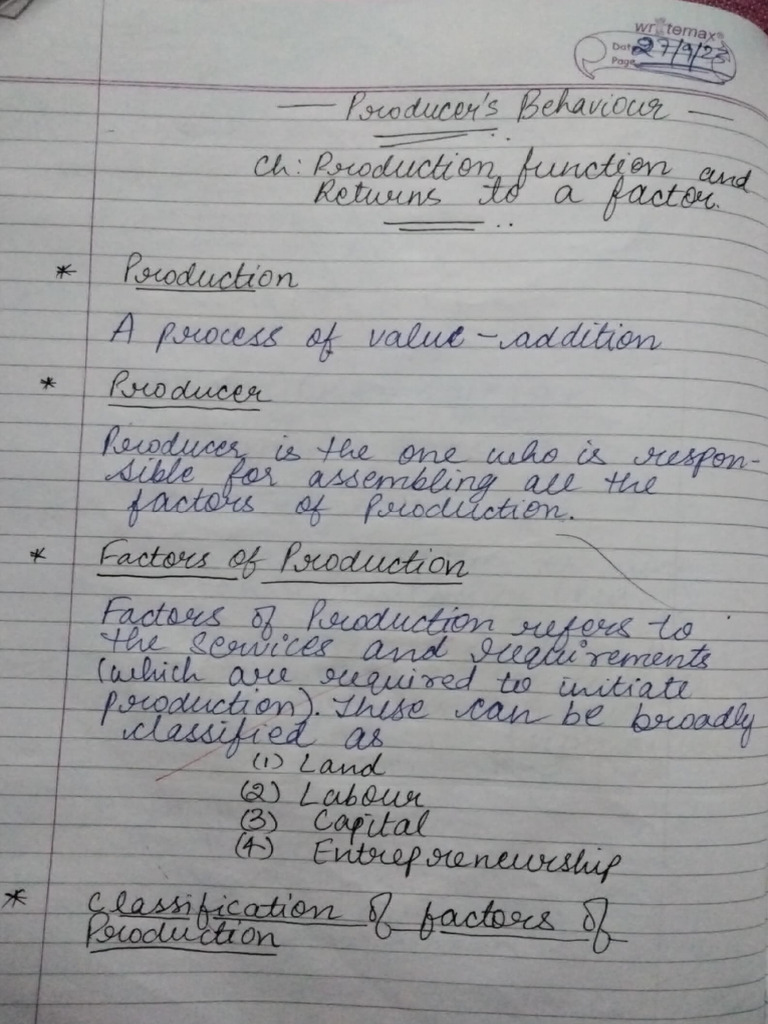 writernax
Date 27/9/23
Page
Producer's Behaviour
Ch: Production function and
Returns to a factor.
* Production
A process of value-addition
* Producer
Producer is the one who is respon-
sible for assembling all the
factors of production.
* Factors of Production
Factors of Production refers to
the services and requirements
(which are required to initiate
production). These can be broadly
classified as
(1) Land
(2) Labour
(3) Capital
(4) Entrepreneurship
* Classification of factors of
Production